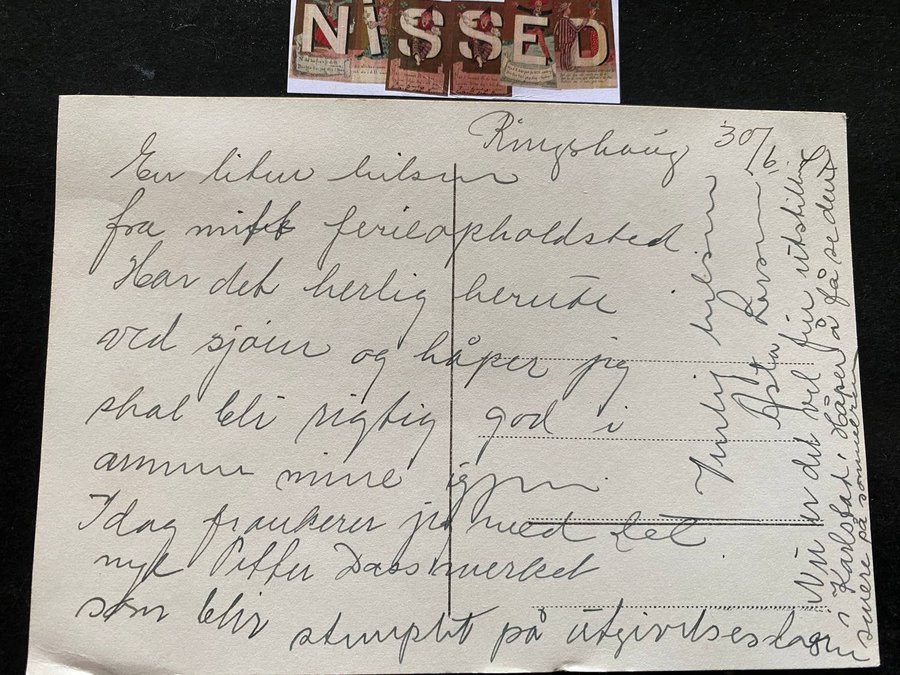 NiSSED
Ringshaug 30/6.
En liten hilsen
fra mitt ferieopholdsted
Har det herlig herute
ved sjøen og håper jeg
skal bli rigtig god i
armene mine igjen
Idag frankerer jeg med det
nye Petter Dass merket
som blir stemplet på utgivelsesdagen
Venlig hilsen
Asta Larsen
Når er det vel fin utstilling
i Karlstad. Håper å få se dere
senere på sommeren